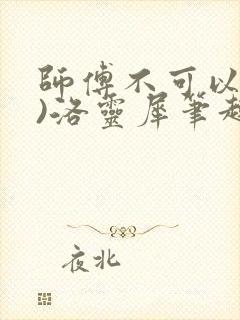 師傅不可以
)洛靈犀筆趣
夜北